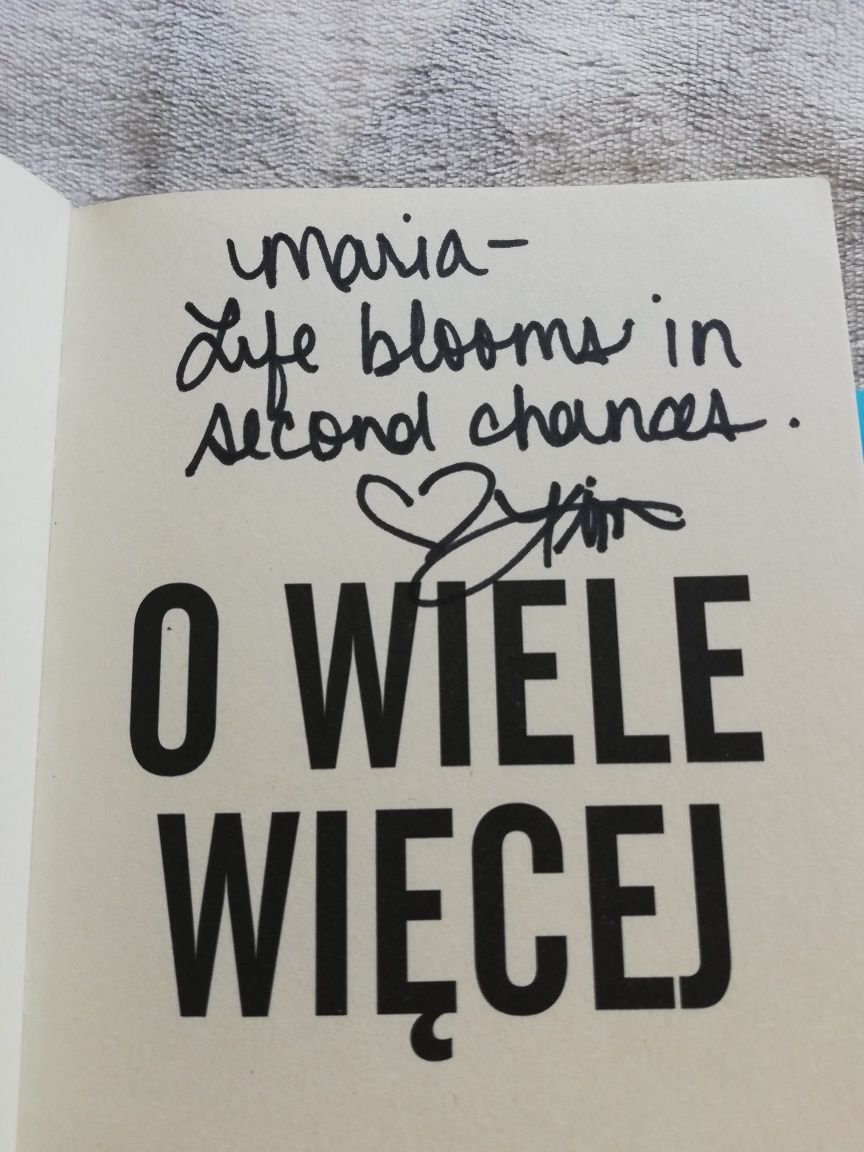 Maria-
Life blooms in
second chances.
♡ Kim
O WIELE
WIĘCEJ